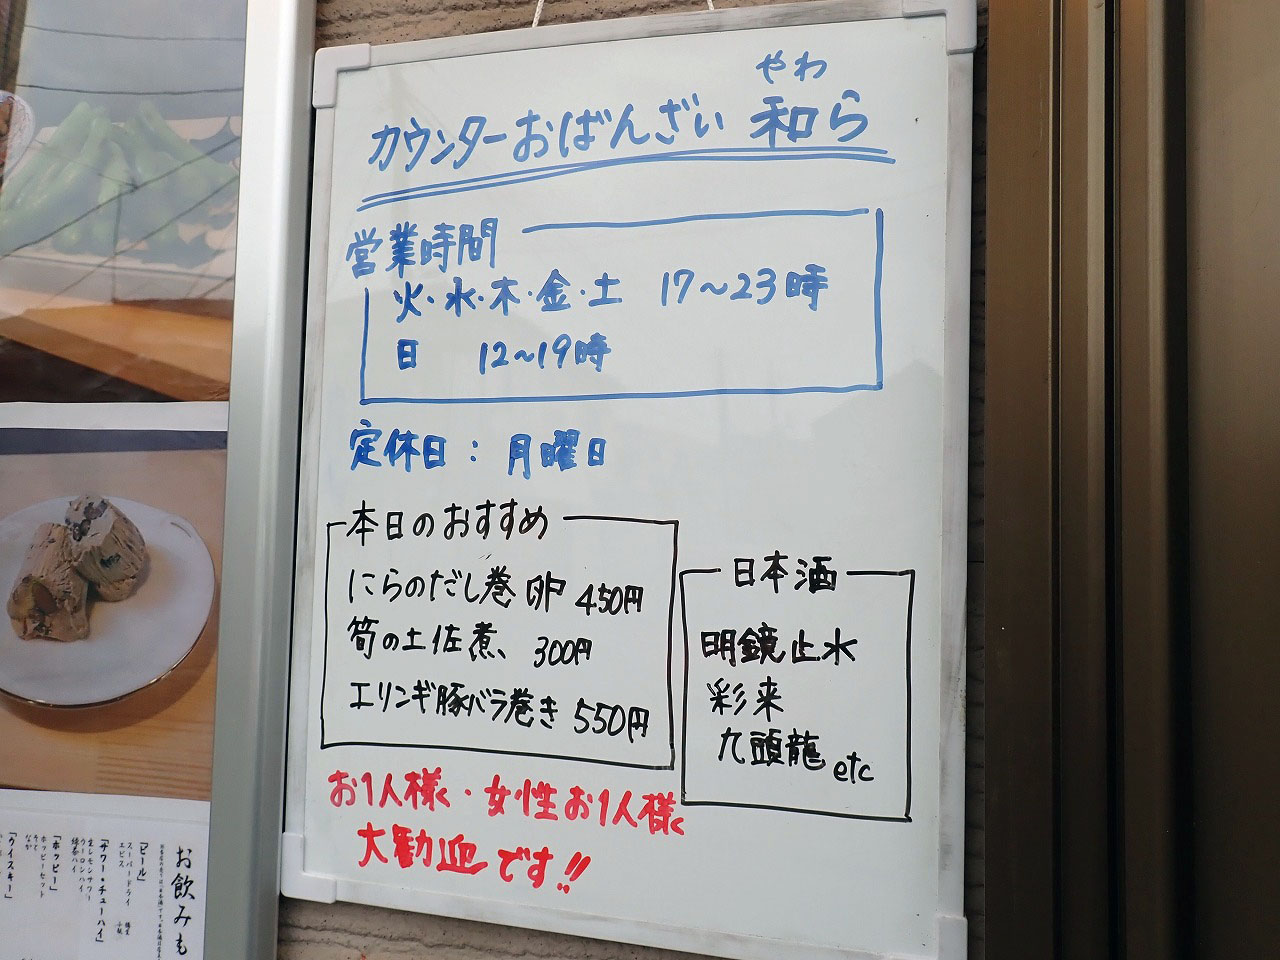 やわ
カウンターおばんざい 和ら
営業時間
火・水・木・金・土 17～23時
日 12～19時
定休日： 月曜日
本日のおすすめ
にらのだし巻卵 450円
筍の土佐煮、 300円
エリンギ豚バラ巻き 550円
日本酒
明鏡止水
彩来
九頭龍 etc
お1人様・女性お1人様
大歓迎です!!
お飲みも
「ビール」
スーパードライ
エビス
「サワー・チューハイ」
生レモンサワー
ウーロンハイ
緑茶ハイ
「ホッピー」
ホッピーセット
そと
なか
「ウイスキー」